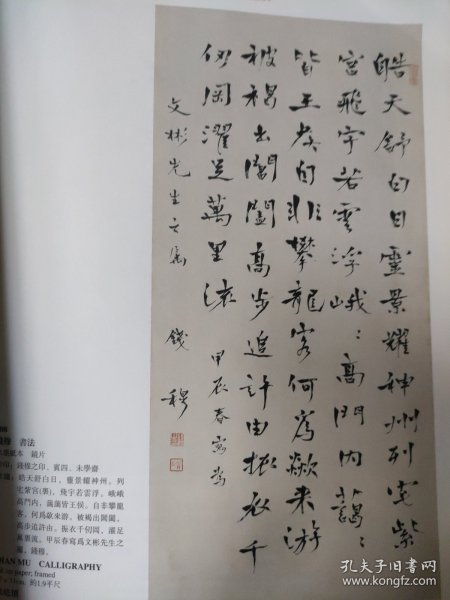 皓天舒白日靈景耀神州列宅紫
宮飛宇若雲浮峨〻高門內藹〻
皆王侯自非攀龍客何為歘來游
被褐出閶闔高步追許由振衣千
仞岡濯足萬里流 甲辰春寫為
文彬先生之屬 錢穆
穆 書法
紙本 鏡片
印：錢穆之印、賓四、未學齋
皓天舒白日，靈景耀神州，列
高門內，藹藹皆王侯。自非攀龍
客，何為歘來游，被褐出閶闔，
高步追許由，振衣千仞岡，濯足
萬里流。甲辰春寫為文彬先生之
屬，錢穆。
HAN MU CALLIGRAPHY
on paper; framed
約1.9平尺
孔夫子旧书网